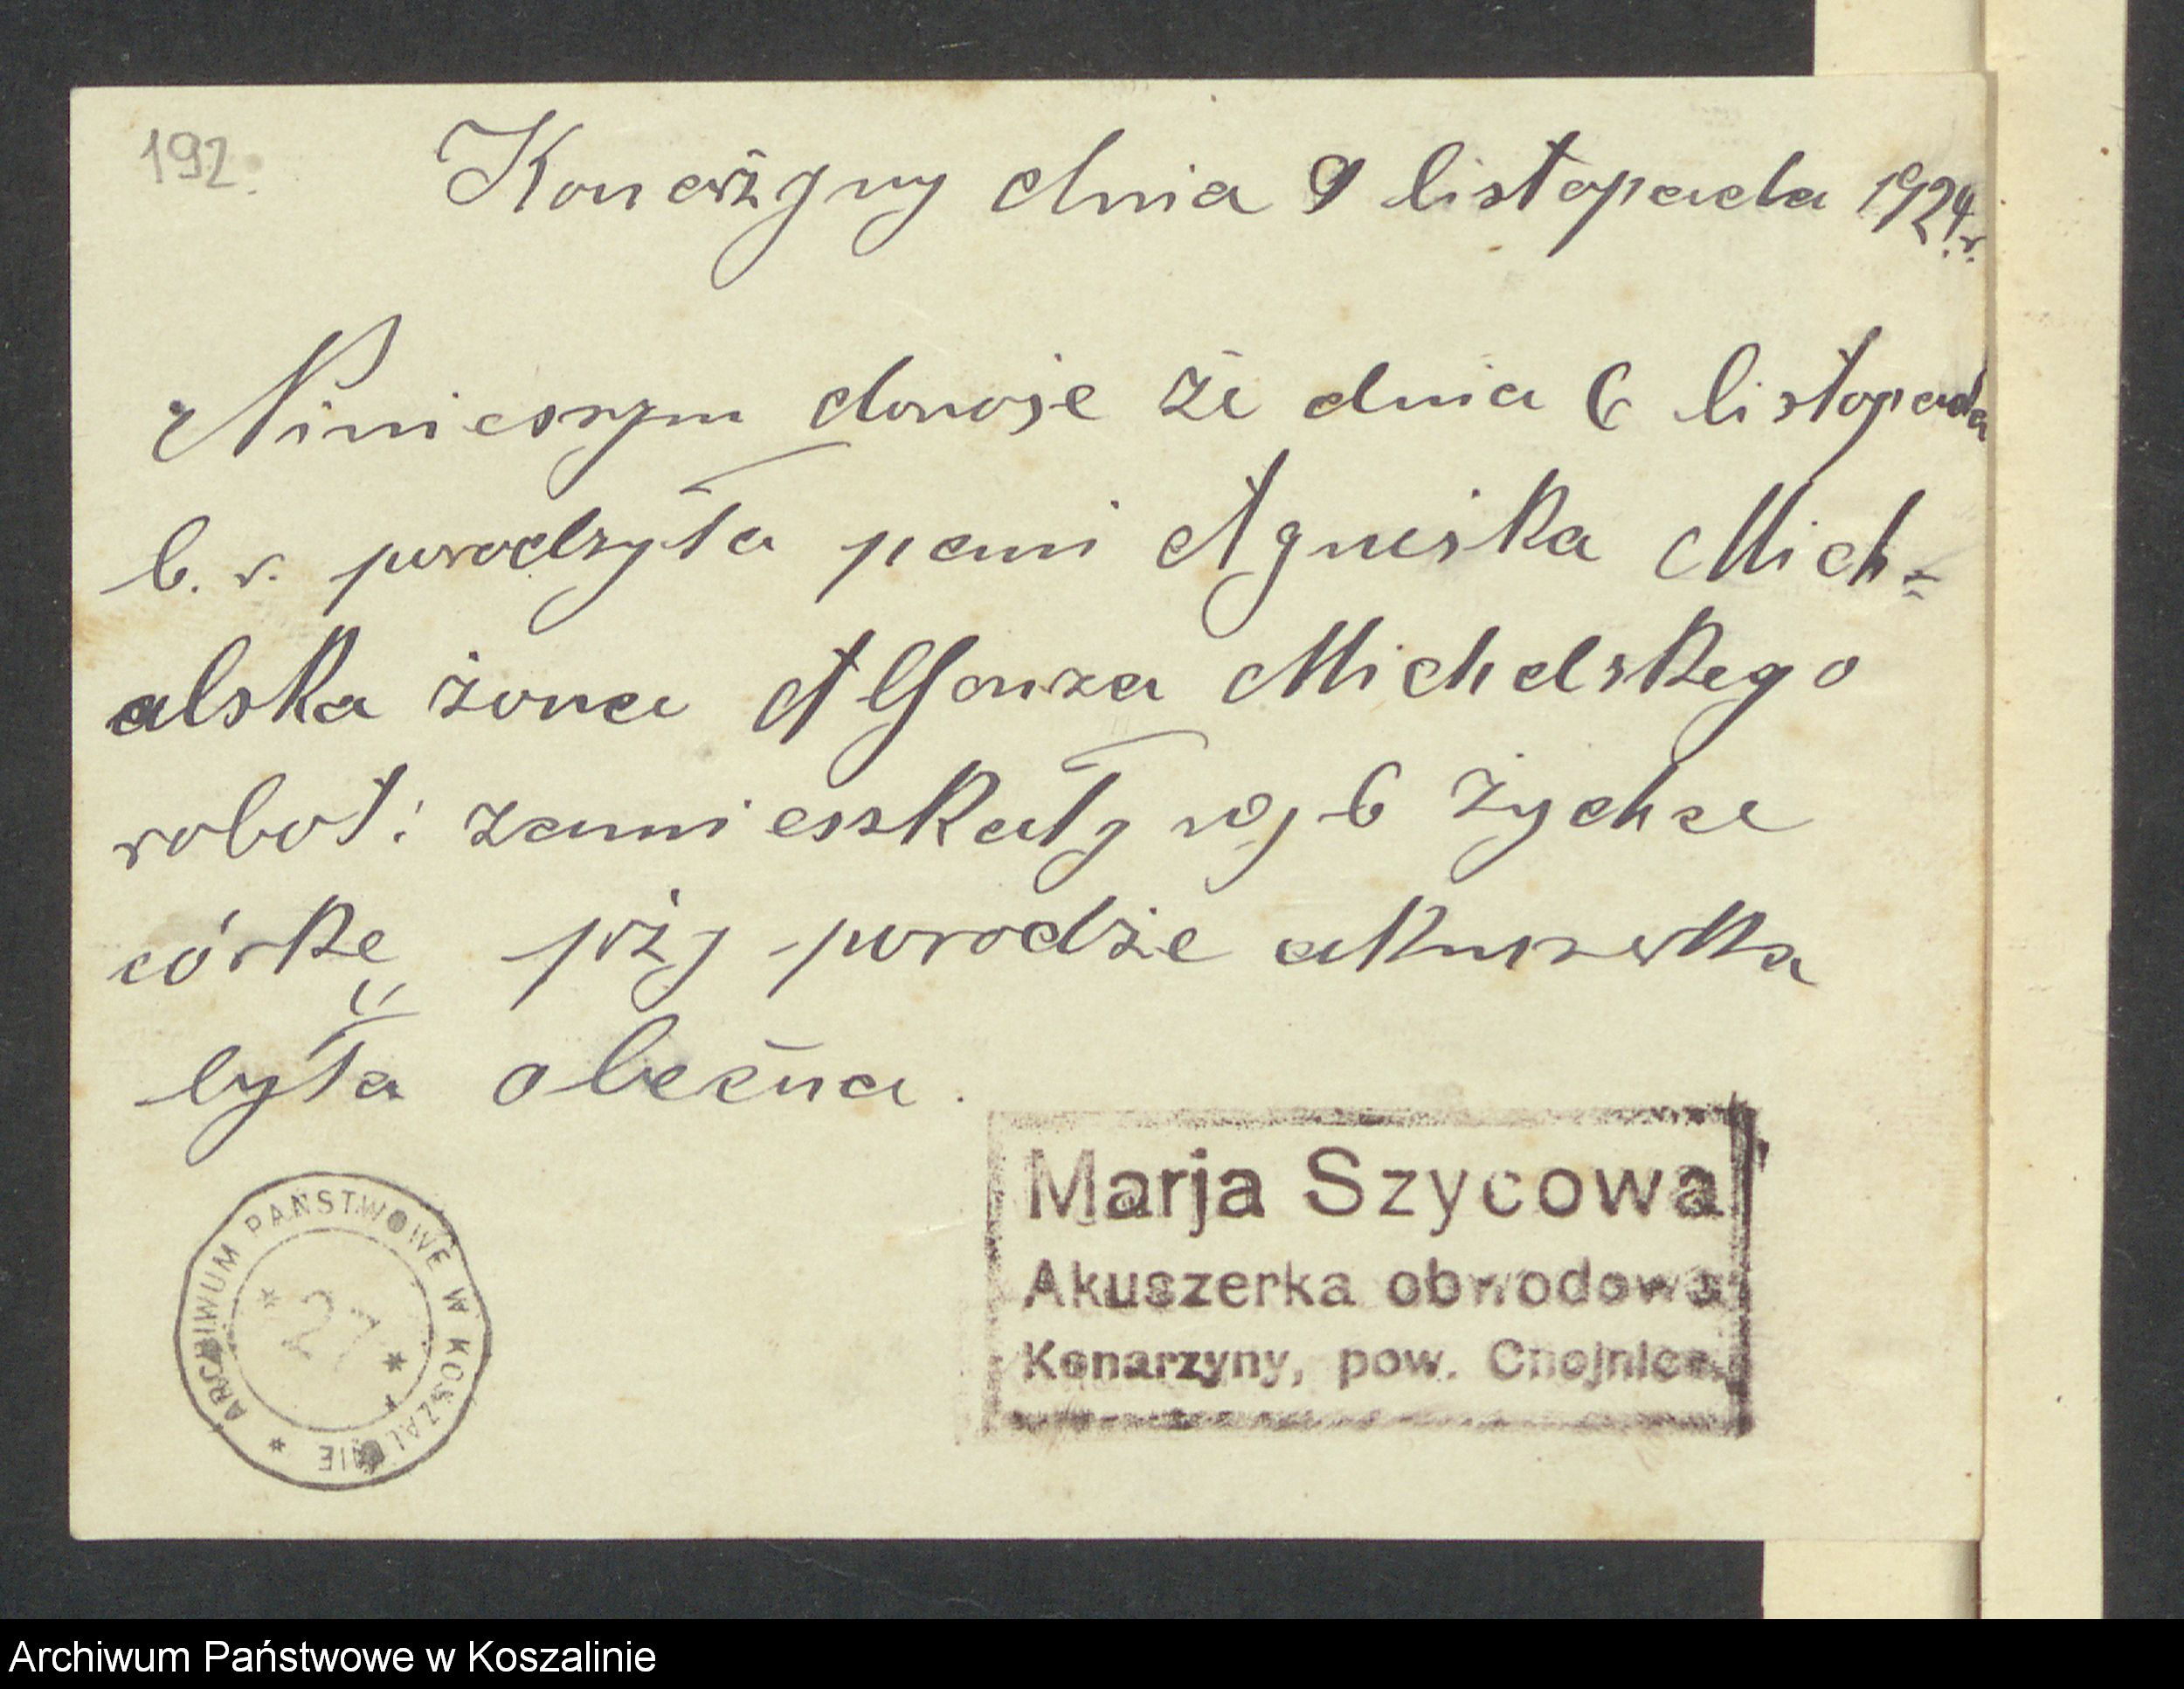 192.
Konarżyny dnia 9 listopada 1924 r.
Ninieszym donosje że dnia 6 listopada
b. r. porodzyła pani Agneska Mich=
alska żona Alfonza Michalskego
robot: zamiesskały w Żychce
córkę pży porodże akuszerka
była obecna.
Marja Szycowa
Akuszerka obwodowa
Konarzyny, pow. Chojnice.
ARCHIWUM PAŃSTWOWE W KOSZALINIE
27
Archiwum Państwowe w Koszalinie